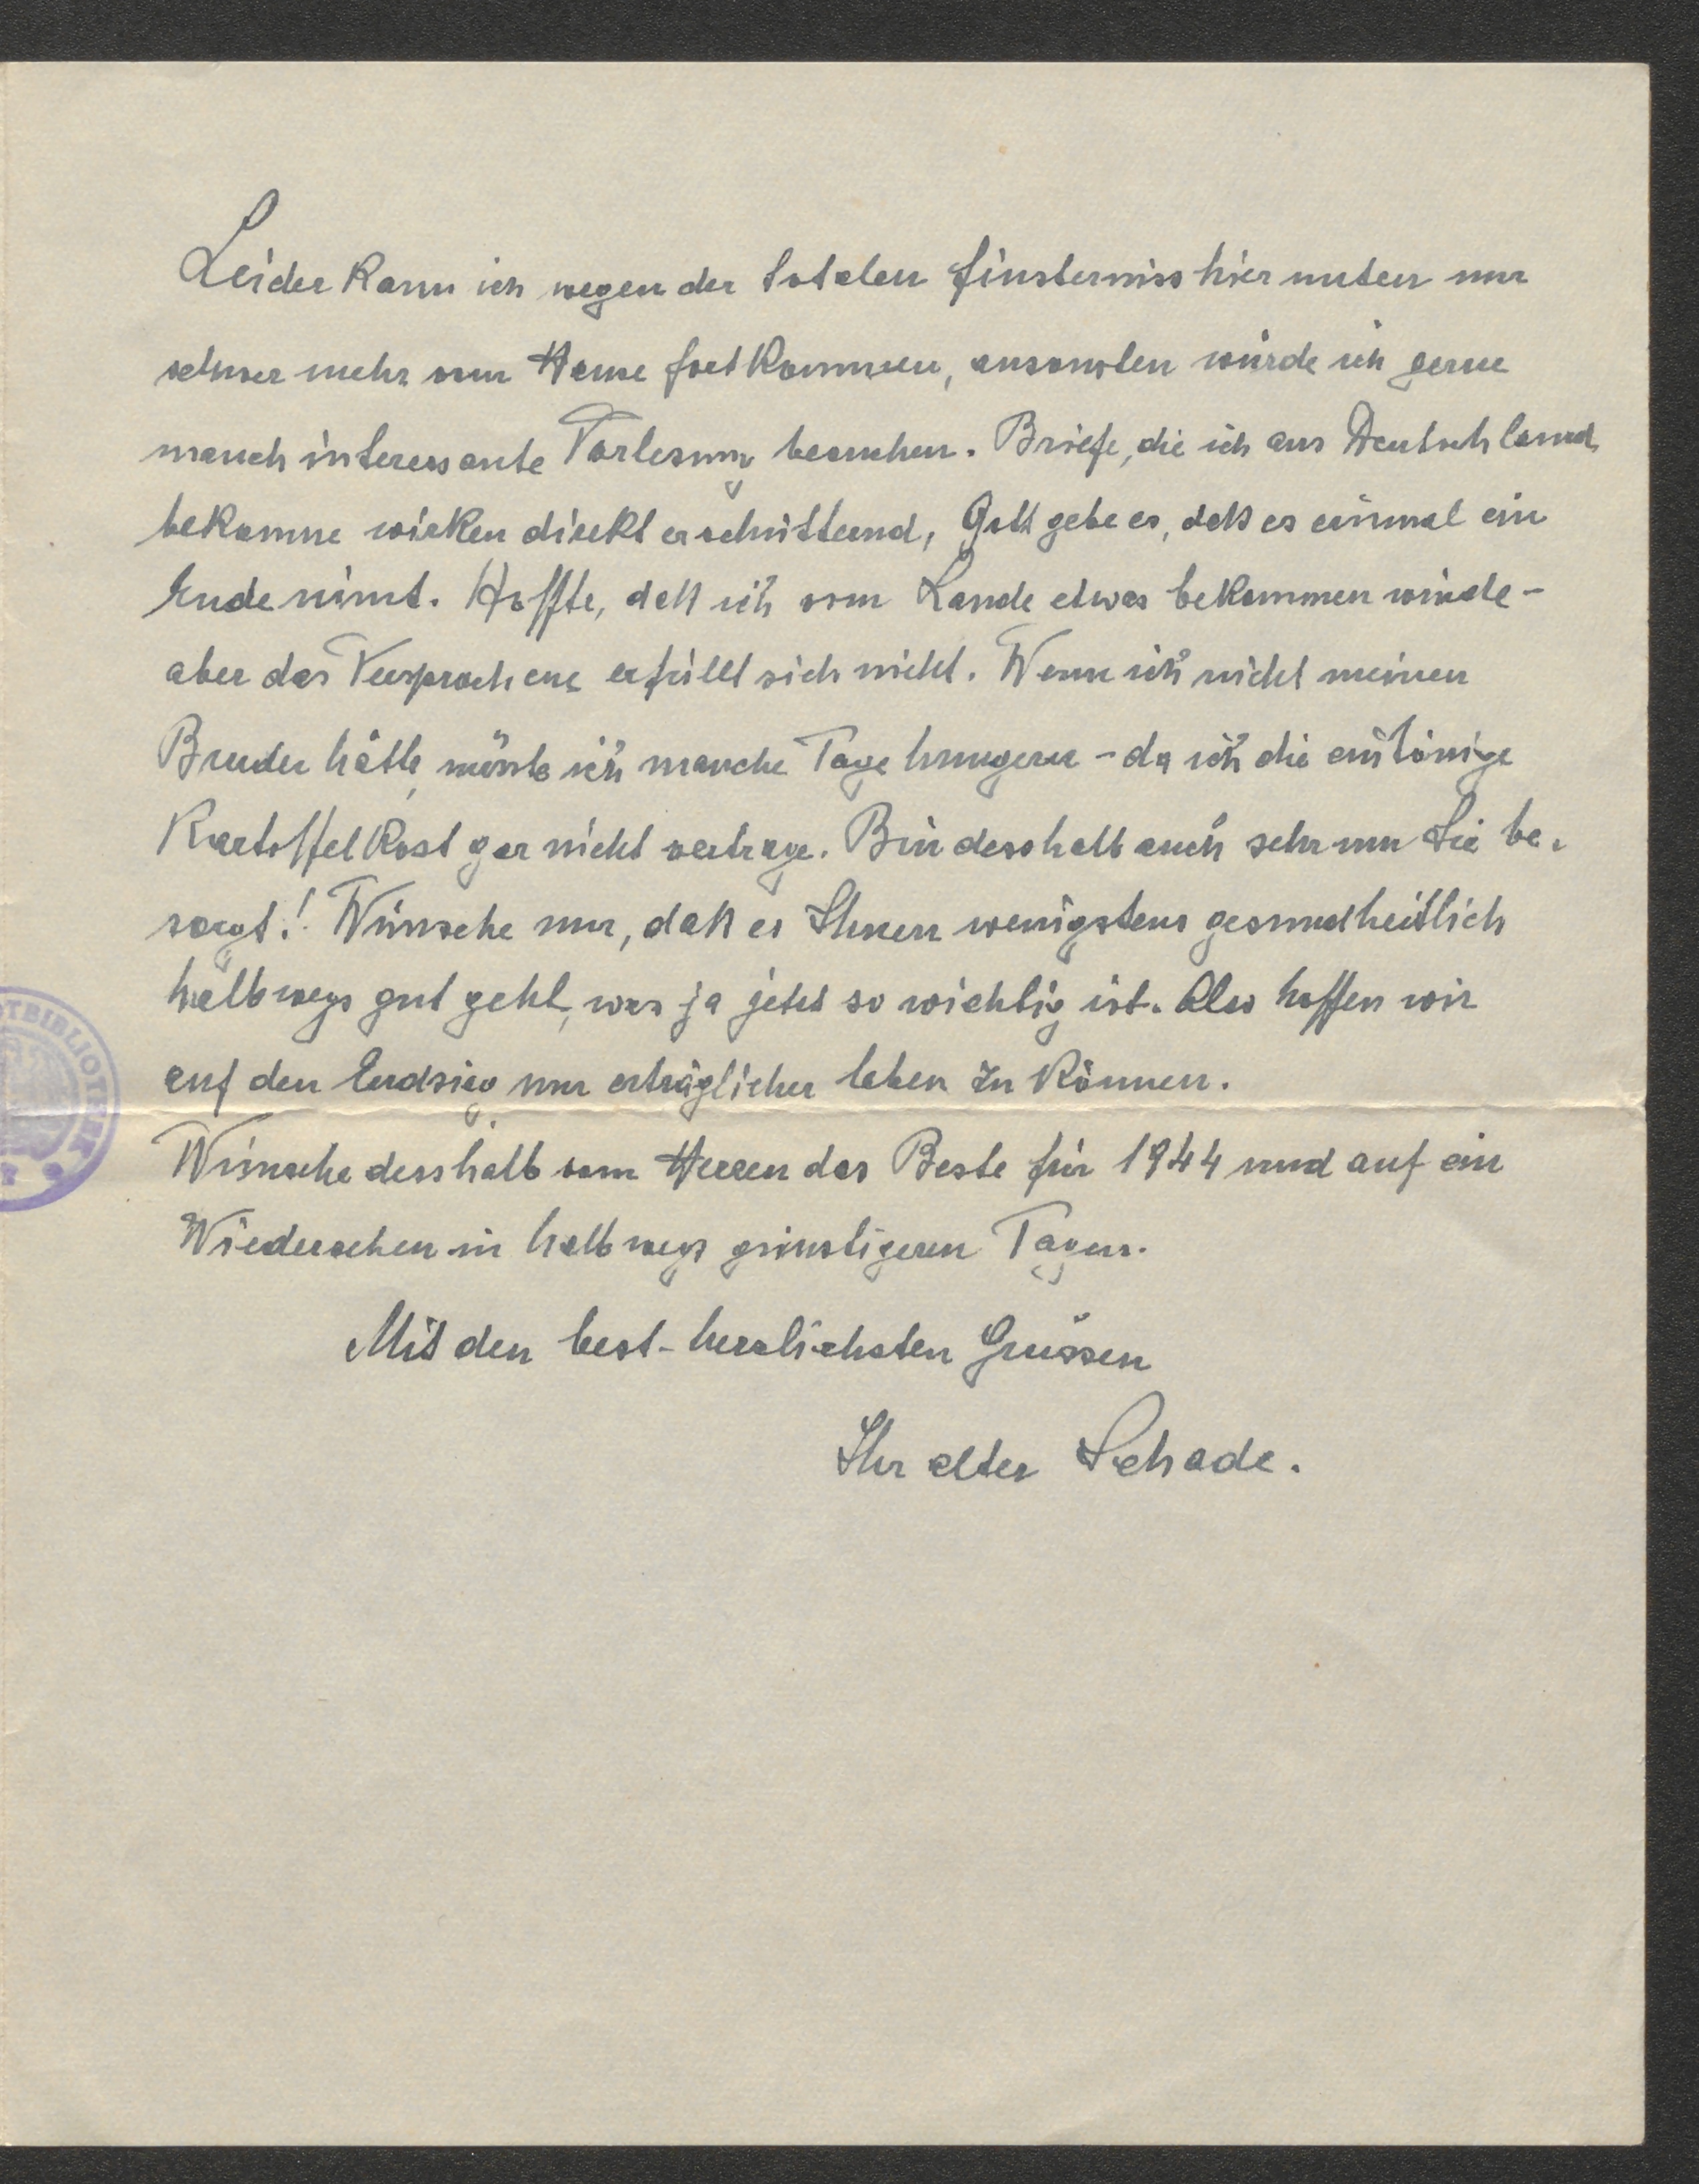 Leider kann ich wegen der totalen Finsterniss hier unten nur
schwer mehr vom Hause fortkommen, ansonsten würde ich gerne
manch interessante Vorlesung besuchen. Briefe, die ich aus Deutschland
bekomme wirken direkt erschütternd, Gott gebe es, daß es einmal ein
Ende nimt. Hoffte, daß ich vom Lande etwas bekommen würde -
aber das Versprochene erfüllt sich nicht. Wenn ich nicht meinen
Bruder hätte, müsste ich manche Tage hungern - da ich die eintönige
Kartoffelkost gar nicht vertrage. Bin desshalb auch sehr um Sie be-
sorgt! Wünsche nur, daß es Ihnen wenigstens gesundheitlich
halbwegs gut geht, was ja jetzt so wichtig ist. Also hoffen wir
auf den Endsieg um erträglicher leben zu können.
Wünsche desshalb vom Herren das Beste für 1944 und auf ein
Wiedersehen in halbwegs günstigeren Tagen.
Mit den best-herzlichsten Grüssen
Ihr alter Schade.
TBIBLIOTHEK